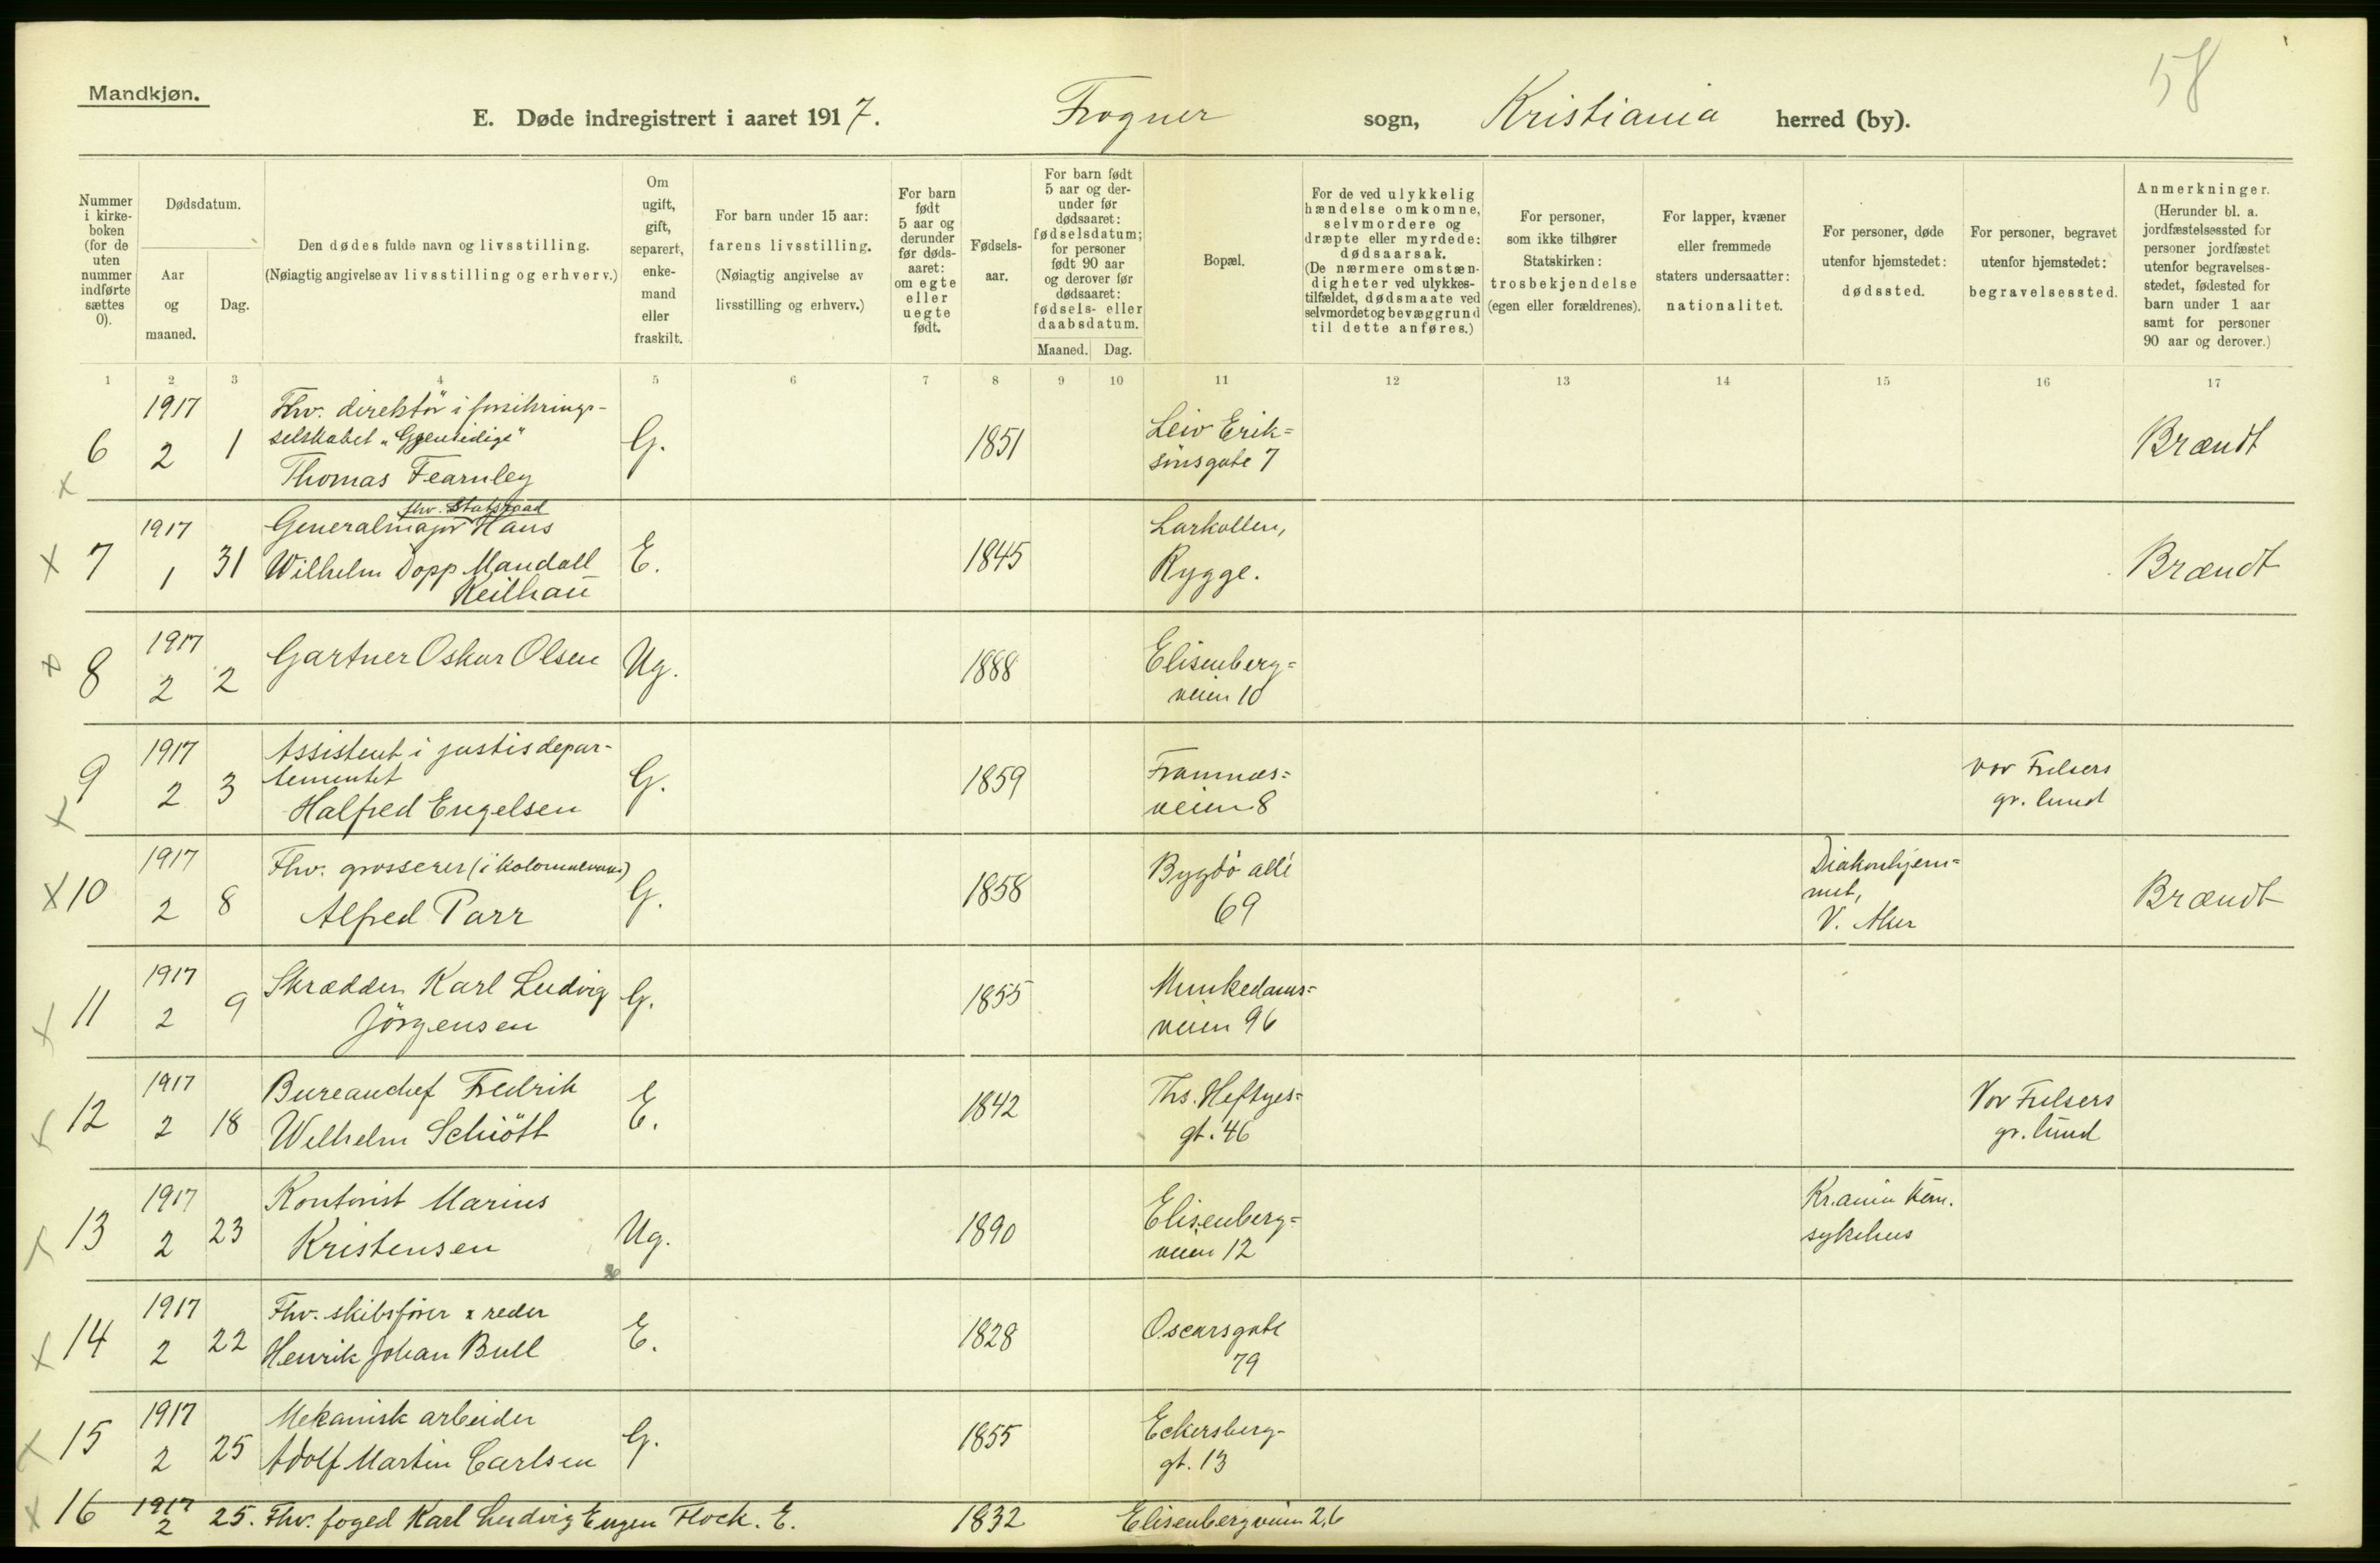 58
Mandkjøn.
E. Døde indregistrert i aaret 1917. Frogner sogn, Kristiania herred (by).
Nummer i kirkeboken (for de uten nummer indførte sættes 0).
Dødsdatum.
Aar og maaned.
Dag.
Den dødes fulde navn og livsstilling.
(Nøiagtig angivelse av livsstilling og erhverv.)
Om ugift, gift, separert, enkemand eller fraskilt.
For barn under 15 aar:
farens livsstilling.
(Nøiagtig angivelse av
livsstilling og erhverv.)
For barn født 5 aar og derunder før dødsaaret: om egte eller uegte født.
Fødselsaar.
For barn født 5 aar og derunder før dødsaaret: fødselsdatum; for personer født 90 aar og derover før dødsaaret: fødsels- eller daabsdatum.
Maaned. Dag.
Bopæl.
For de ved ulykkelig hændelse omkomne, selvmordere og dræpte eller myrdede: dødsaarsak.
(De nærmere omstændigheter ved ulykkestilfældet, dødsmaate ved selvmordet og bevæggrund til dette anføres.)
For personer, som ikke tilhører Statskirken: trosbekjendelse (egen eller forældrenes).
For lapper, kvæner eller fremmede staters undersaatter: nationalitet.
For personer, døde utenfor hjemstedet: dødssted.
For personer, begravet utenfor hjemstedet: begravelsessted.
Anmerkninger.
(Herunder bl. a. jordfæstelsessted for personer jordfæstet utenfor begravelsesstedet, fødested for barn under 1 aar samt for personer 90 aar og derover.)
1 2 3 4 5 6 7 8 9 10 11 12 13 14 15 16 17
1917 Fhv. direktör i forsikrings-
selskabet „Gjensidige" Leiv Erik=
6 2 1 Thomas Fearnley G. 1851 sönsgate 7 Brændt
x
fhv. Statsraad
1917 Generalmajor Hans Larkollen,
x 7 1 31 Wilhelm Dopp Mandall E. 1845 Rygge. Brændt
Keilhau
1917
x 8 2 2 Gartner Oskar Olsen Ug. 1888 Elisenberg=
veien 10
1917 Assistent i justisdepar-
tementet Framnæs= Vor Frelsers
x 9 2 3 Halfred Engelsen G. 1859 veien 8 gr. lund
1917 Fhv. grosserer (i kolonialvarer) Bygdö allé Diakonhjem=
met,
x 10 2 8 Alfred Parr G. 1858 69 V. Aker Brændt
1917 Skrædder Karl Ludvig Munkedams=
x 11 2 9 Jörgensen G. 1855 veien 96
1917 Bureauchef Fredrik Ths. Heftyes= Vor Frelsers
x 12 2 18 Wilhelm Schiött E. 1842 gt. 46 gr. lund
1917 Kontorist Marius Elisenberg= Kr.ania kom.
x 13 2 23 Kristensen Ug. 1890 veien 12 sykehus
1917 Fhv. skibsförer & reder Oscarsgate
x 14 2 22 Henrik Johan Bull E. 1828 79
1917 Mekanisk arbeider Eckersberg-
x 15 2 25 Adolf Martin Carlsen G. 1855 gt. 13
x 16 1917 2 25. Fhv. foged Karl Ludvig Eugen Flock. E. 1832 Elisenbergveien 26